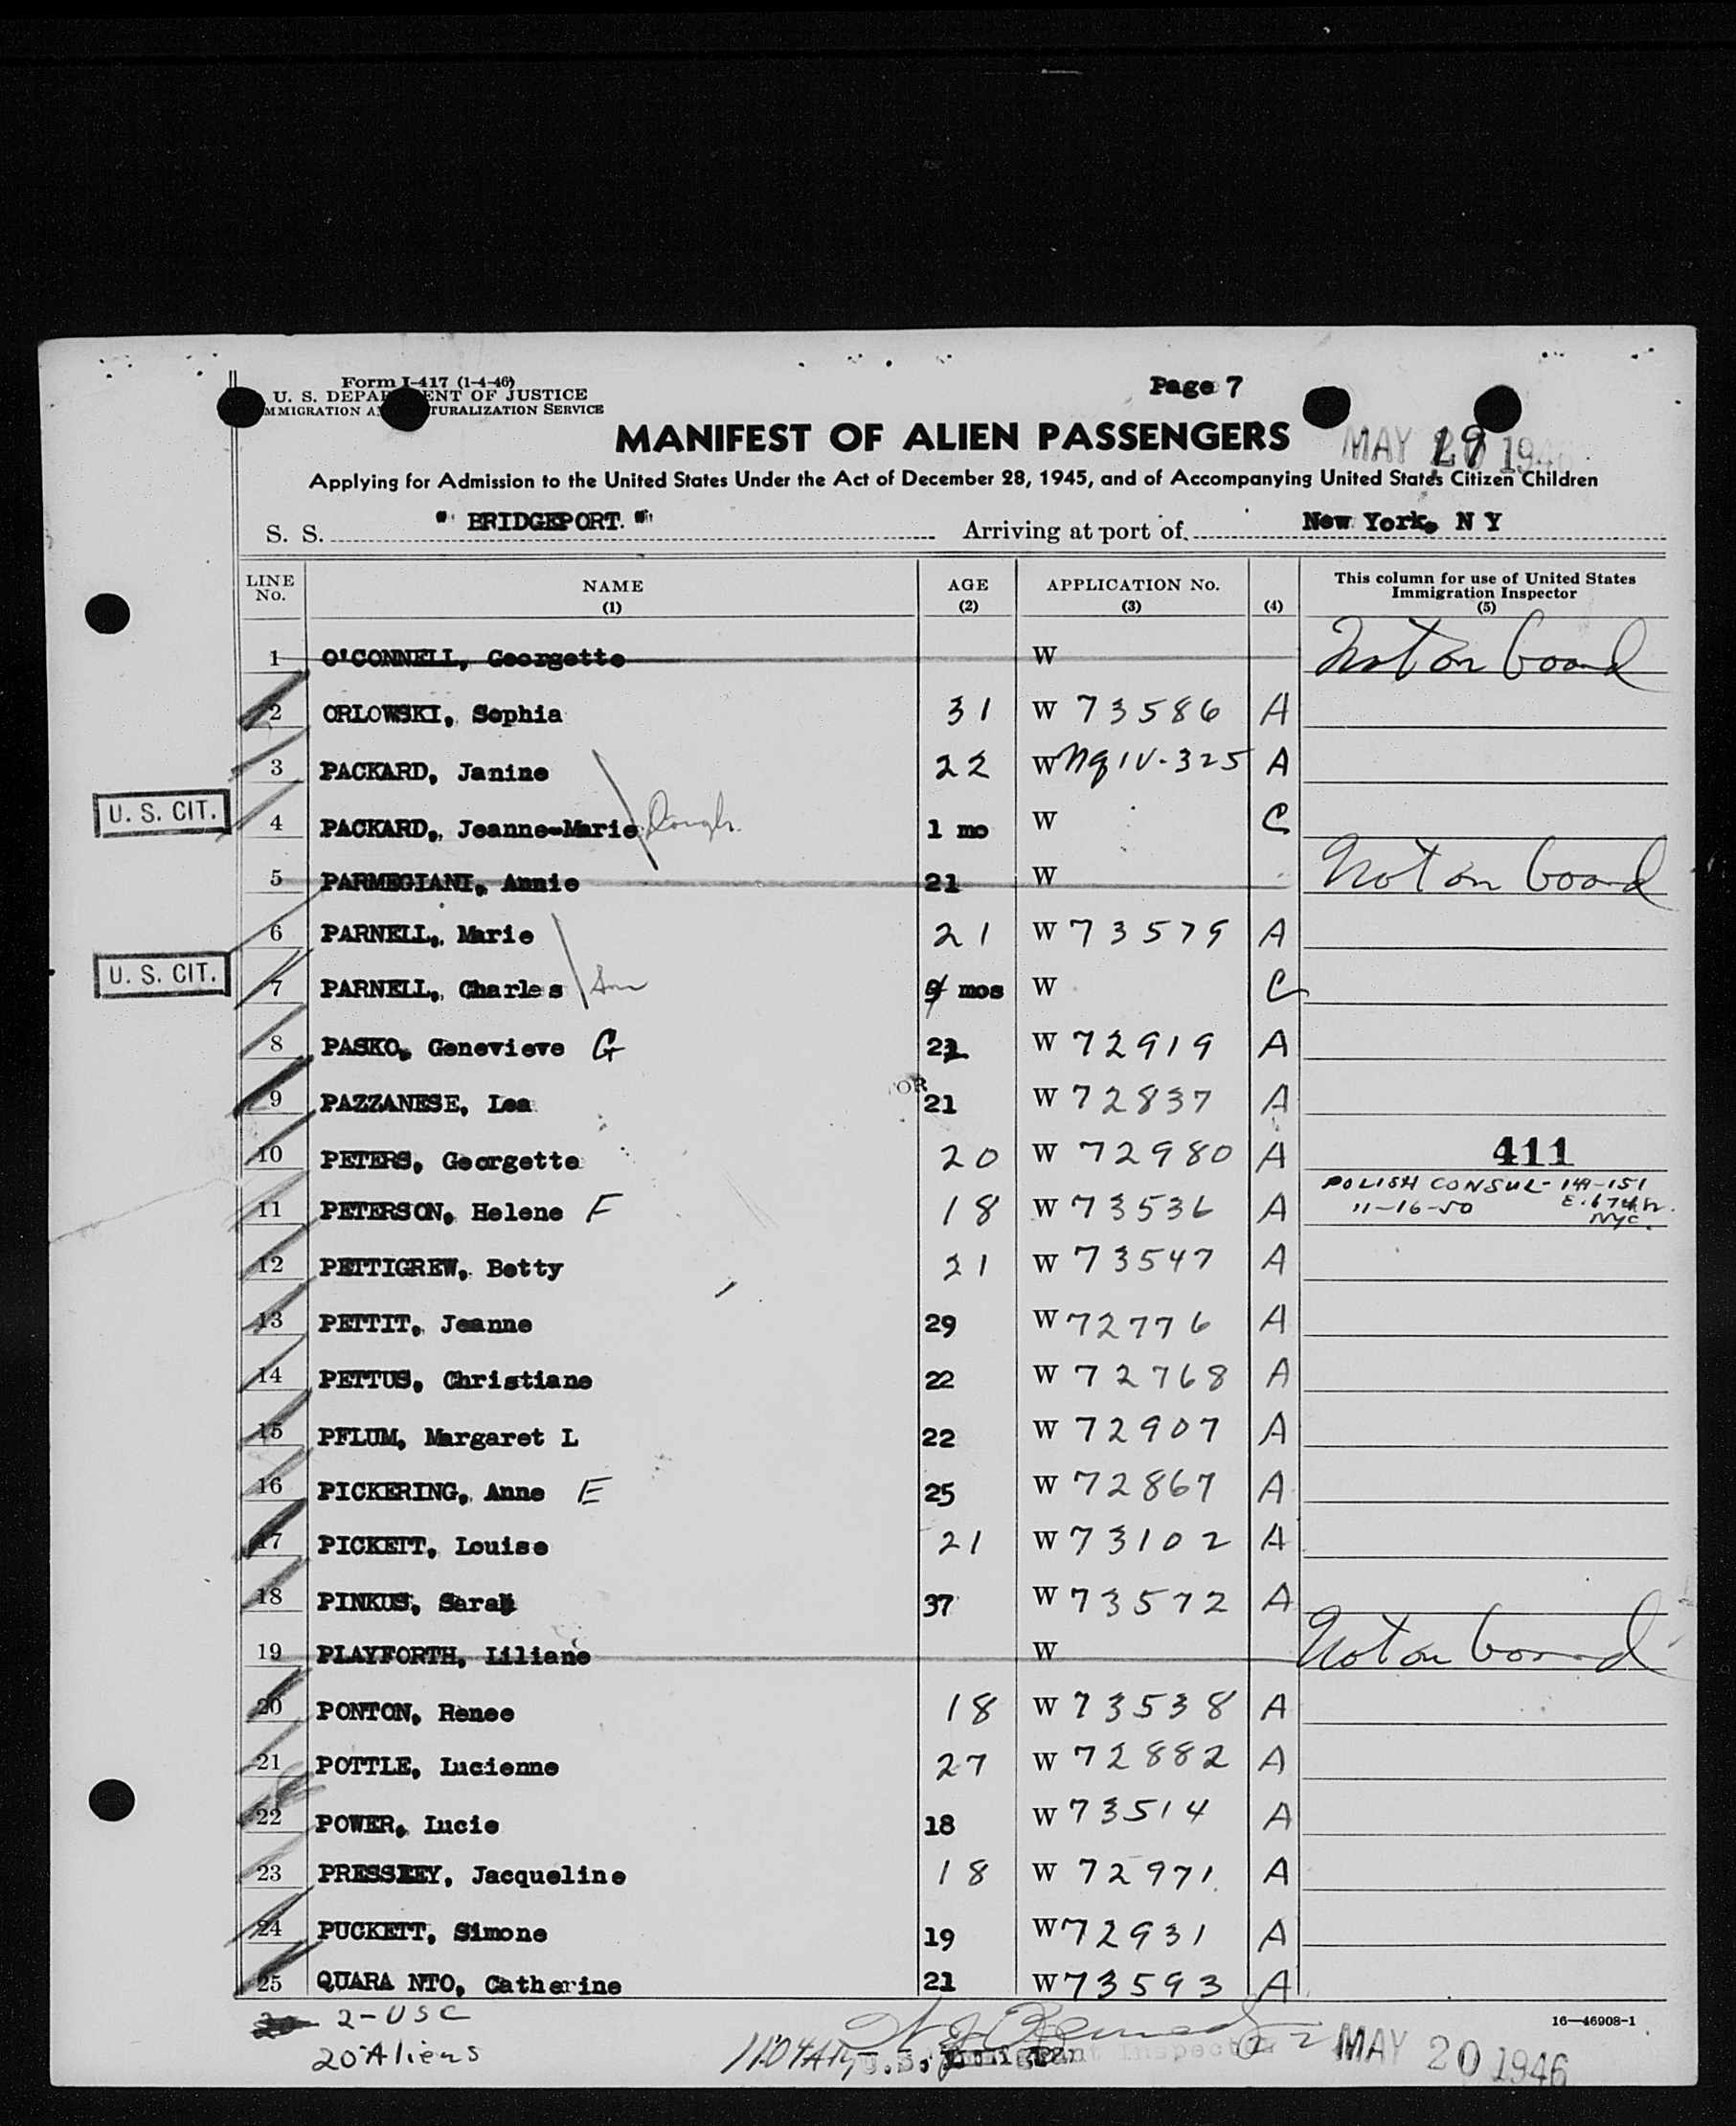 Form I-417 (1-4-46)
U. S. DEPA ENT OF JUSTICE
MMIGRATION A TURALIZATION SERVICE
Page 7
MANIFEST OF ALIEN PASSENGERS
MAY 19 194
Applying for Admission to the United States Under the Act of December 28, 1945, and of Accompanying United States Citizen Children
S. S. " BRIDGEPORT. " Arriving at port of New York, N Y
LINE No. NAME (1) AGE (2) APPLICATION No. (3) (4) This column for use of United States Immigration Inspector (5)
1 O'CONNELL, Georgette W Not on board
2 ORLOWSKI, Sophia 31 W 73586 A
3 PACKARD, Janine 22 W IV-325 A
U. S. CIT. 4 PACKARD, Jeanne-Marie Daugh. 1 mo W C
5 PARMEGIANI, Annie 21 W Not on board
6 PARNELL, Marie 21 W 73579 A
U. S. CIT. 7 PARNELL, Charles Son 9 mos W C
8 PASKO, Genevieve G 22 W 72919 A
9 PAZZANESE, Lea 21 W 72837 A
10 PETERS, Georgette 20 W 72980 A 411
11 PETERSON, Helene F 18 W 73536 A POLISH CONSUL - 149-151 E. 67th St. 11-16-50 NYC.
12 PETTIGREW, Betty 21 W 73547 A
13 PETTIT, Jeanne 29 W 72776 A
14 PETTUS, Christiane 22 W 72768 A
15 PFLUM, Margaret L 22 W 72907 A
16 PICKERING, Anne E 25 W 72867 A
17 PICKETT, Louise 21 W 73102 A
18 PINKUS, Sarah 37 W 73572 A
19 PLAYFORTH, Liliane W Not on board
20 PONTON, Renee 18 W 73538 A
21 POTTLE, Lucienne 27 W 72882 A
22 POWER, Lucie 18 W 73514 A
23 PRESSLEY, Jacqueline 18 W 72971 A
24 PUCKETT, Simone 19 W 72931 A
25 QUARA NTO, Catherine 21 W 73593 A
2-USC
16—46908-1
20 Aliens
U.S. Immigrant Inspector
MAY 20 1946